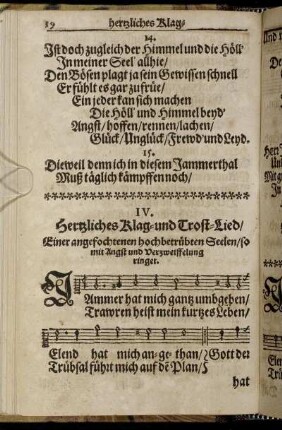 19 hertzliches Klag-
14.
Ist doch zugleich der Himmel und die Höll'
In meiner Seel' allhie/
Den Bösen plagt ja sein Gewissen schnell
Er fühlt es gar zu früe/
Ein jeder kan sich machen
Die Höll' und Himmel beyd'
Angst/ hoffen/ rennen/ lachen/
Glück/ Unglück/ Frewd' und Leyd.
15.
Dieweil denn ich in diesem Jammerthal
Muß täglich kämpffen noch/
IV.
Hertzliches Klag- und Trost-Lied/
Einer angefochtenen hochbetrübten Seelen/ so
mit Angst und Verzweiffelung
ringet.
JAmmer hat mich gantz umbgeben/
Trawren heist mein kurtzes Leben/
Elend hat mich an-ge-than/ Gott der
Trübsal führt mich auf dē Plan/
hat